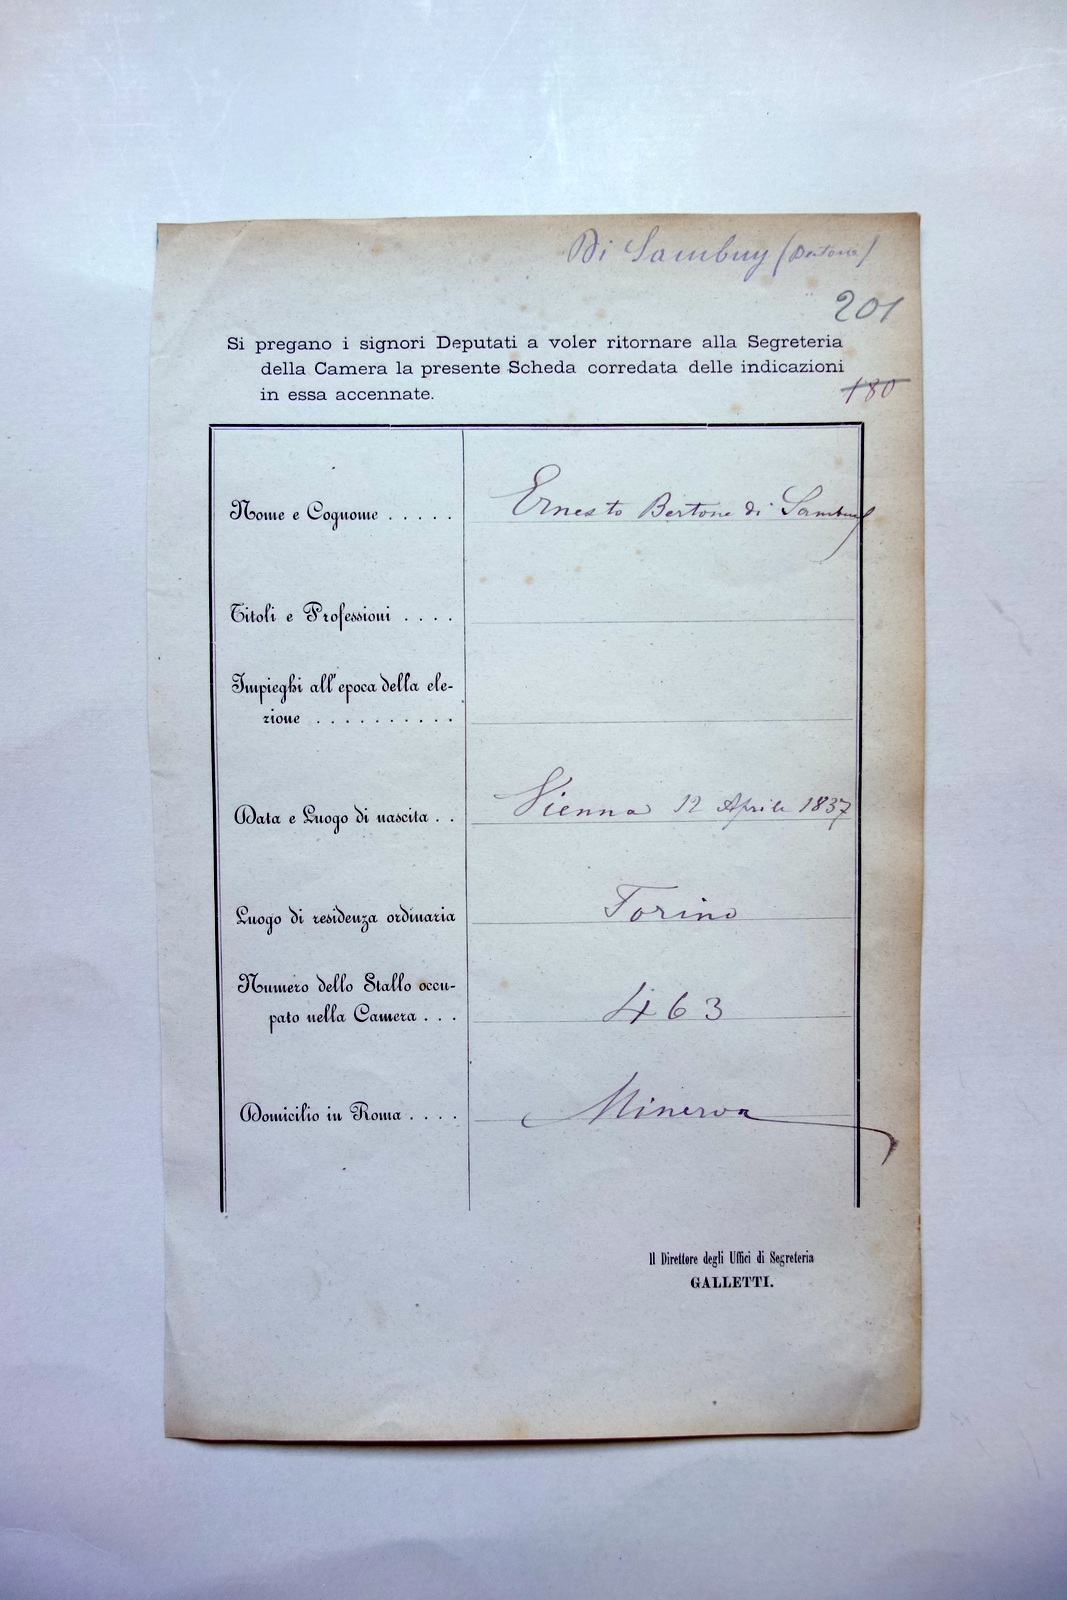 Di Sambuy (Bertone)
201
Si pregano i signori Deputati a voler ritornare alla Segreteria
della Camera la presente Scheda corredata delle indicazioni
180
in essa accennate.
Nome e Cognome . . . . . Ernesto Bertone di Sambuy
Titoli e Professioni . . . .
Impieghi all'epoca della ele-
zione . . . . . . . . . .
Data e Luogo di nascita . . Vienna 12 Aprile 1837
Luogo di residenza ordinaria Torino
Numero dello Stallo occu-
pato nella Camera . . . 463
Domicilio in Roma . . . . Minerva
Il Direttore degli Uffici di Segreteria
GALLETTI.